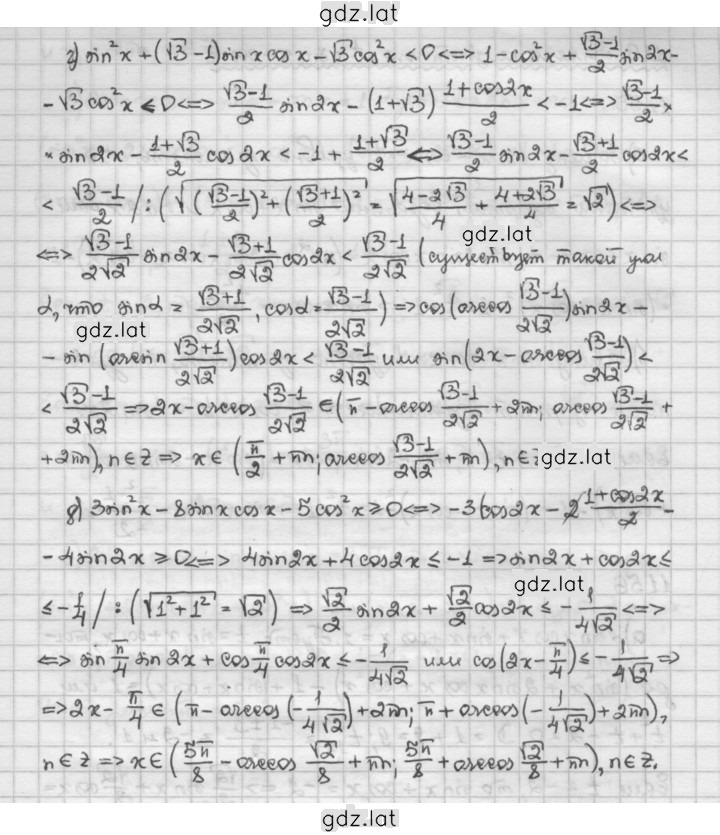 gdz.lat
г) sin²x + (√3 − 1)sin x cos x − √3 cos²x < 0 <=> 1 − cos²x + (√3−1)/2 sin2x −
− √3 cos²x < 0 <=> (√3−1)/2 sin2x − (1+√3) (1+cos2x)/2 < −1 <=> (√3−1)/2 ×
× sin2x − (1+√3)/2 cos2x < −1 + (1+√3)/2 <=> (√3−1)/2 sin2x − (√3+1)/2 cos2x <
< (√3−1)/2 / : (√(((√3−1)/2)² + ((√3+1)/2)²) = √((4−2√3)/4 + (4+2√3)/4) = √2) <=>
gdz.lat
<=> (√3−1)/(2√2) sin2x − (√3+1)/(2√2) cos2x < (√3−1)/(2√2) (существует такой угол
α, что sinα = (√3+1)/(2√2), cosα = (√3−1)/(2√2)) => cos(arccos (√3−1)/(2√2)) sin2x −
gdz.lat
− sin(arcsin (√3+1)/(2√2)) cos2x < (√3−1)/(2√2) или sin(2x − arccos (√3−1)/(2√2)) <
< (√3−1)/(2√2) => 2x − arccos (√3−1)/(2√2) ∈ (π − arccos (√3−1)/(2√2) + 2πn; arccos (√3−1)/(2√2) +
+ 2πn), n∈Z => x∈ (π/2 + πn; arccos (√3−1)/(2√2) + πn), n∈Z
gdz.lat
д) 3sin²x − 8sin x cos x − 5cos²x ≥ 0 <=> −3cos2x − 2 (1+cos2x)/2 −
− 4sin2x ≥ 0 <=> 4sin2x + 4cos2x ≤ −1 => sin2x + cos2x ≤
gdz.lat
≤ −1/4 / : (√(1²+1²) = √2) => √2/2 sin2x + √2/2 cos2x ≤ −1/(4√2) <=>
<=> sin π/4 sin2x + cos π/4 cos2x ≤ −1/(4√2) или cos(2x − π/4) ≤ −1/(4√2) =>
=> 2x − π/4 ∈ (π − arccos(−1/(4√2)) + 2πn; π + arccos(−1/(4√2)) + 2πn),
n∈Z => x∈ (5π/8 − arccos √2/8 + πn; 5π/8 + arccos √2/8 + πn), n∈Z.
gdz.lat